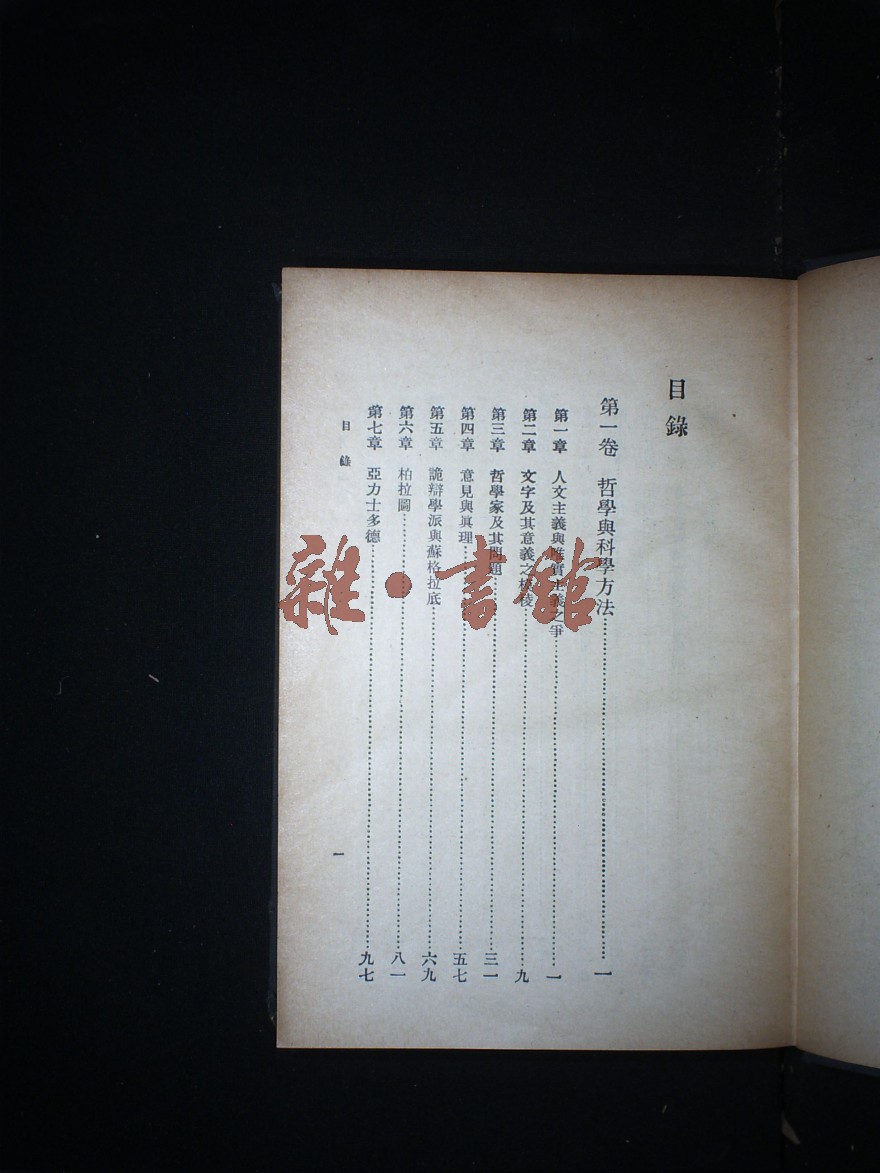 目錄
第一卷 哲學與科學方法……一
第一章 人文主義與唯實主義之爭……一
第二章 文字及其意義之模稜……九
第三章 哲學家及其問題……三一
第四章 意見與眞理……五七
第五章 詭辯學派與蘇格拉底……六九
第六章 柏拉圖……八一
第七章 亞力士多德……九七
目錄
一
雜·書館